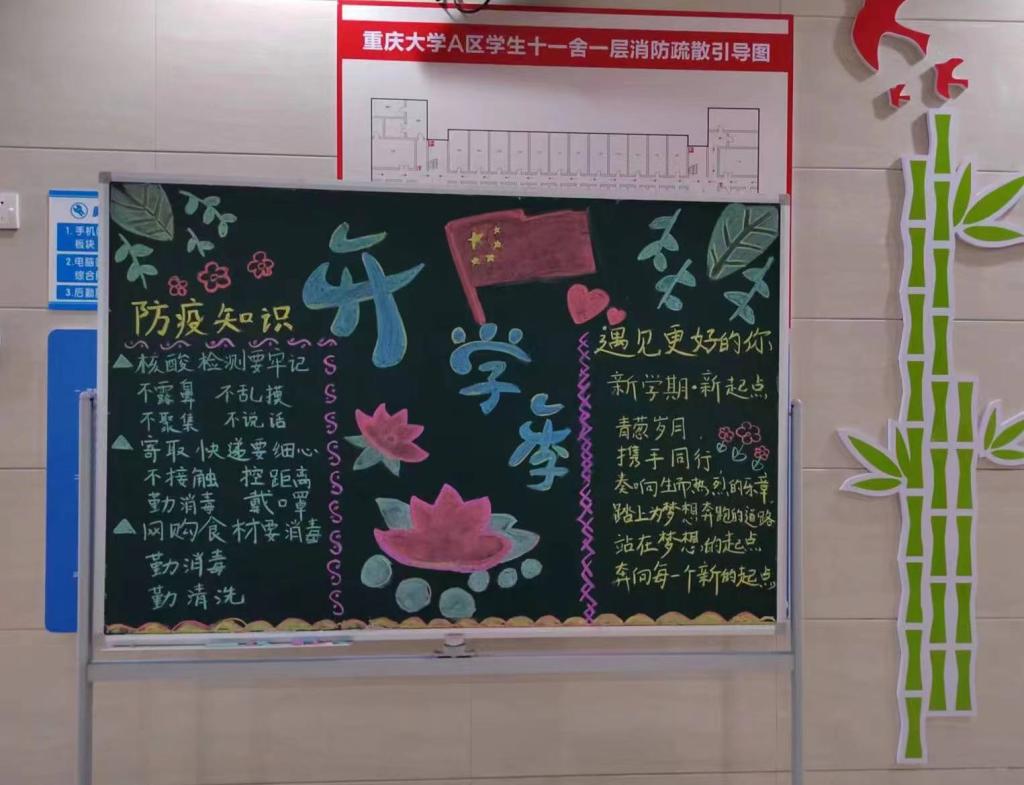 重庆大学A区学生十一舍一层消防疏散引导图
1.手机
板块
2.电脑
综合
3.后勤
开
学
季
防疫知识
核酸检测要牢记
不露鼻 不乱摸
不聚集 不说话
寄取快递要细心
不接触 控距离
勤消毒 戴口罩
网购食材要消毒
勤消毒
勤清洗
遇见更好的你
新学期·新起点
青葱岁月,
携手同行
奏响生命热烈的乐章
踏上为梦想奔跑的道路
站在梦想的起点
奔向每一个新的起点